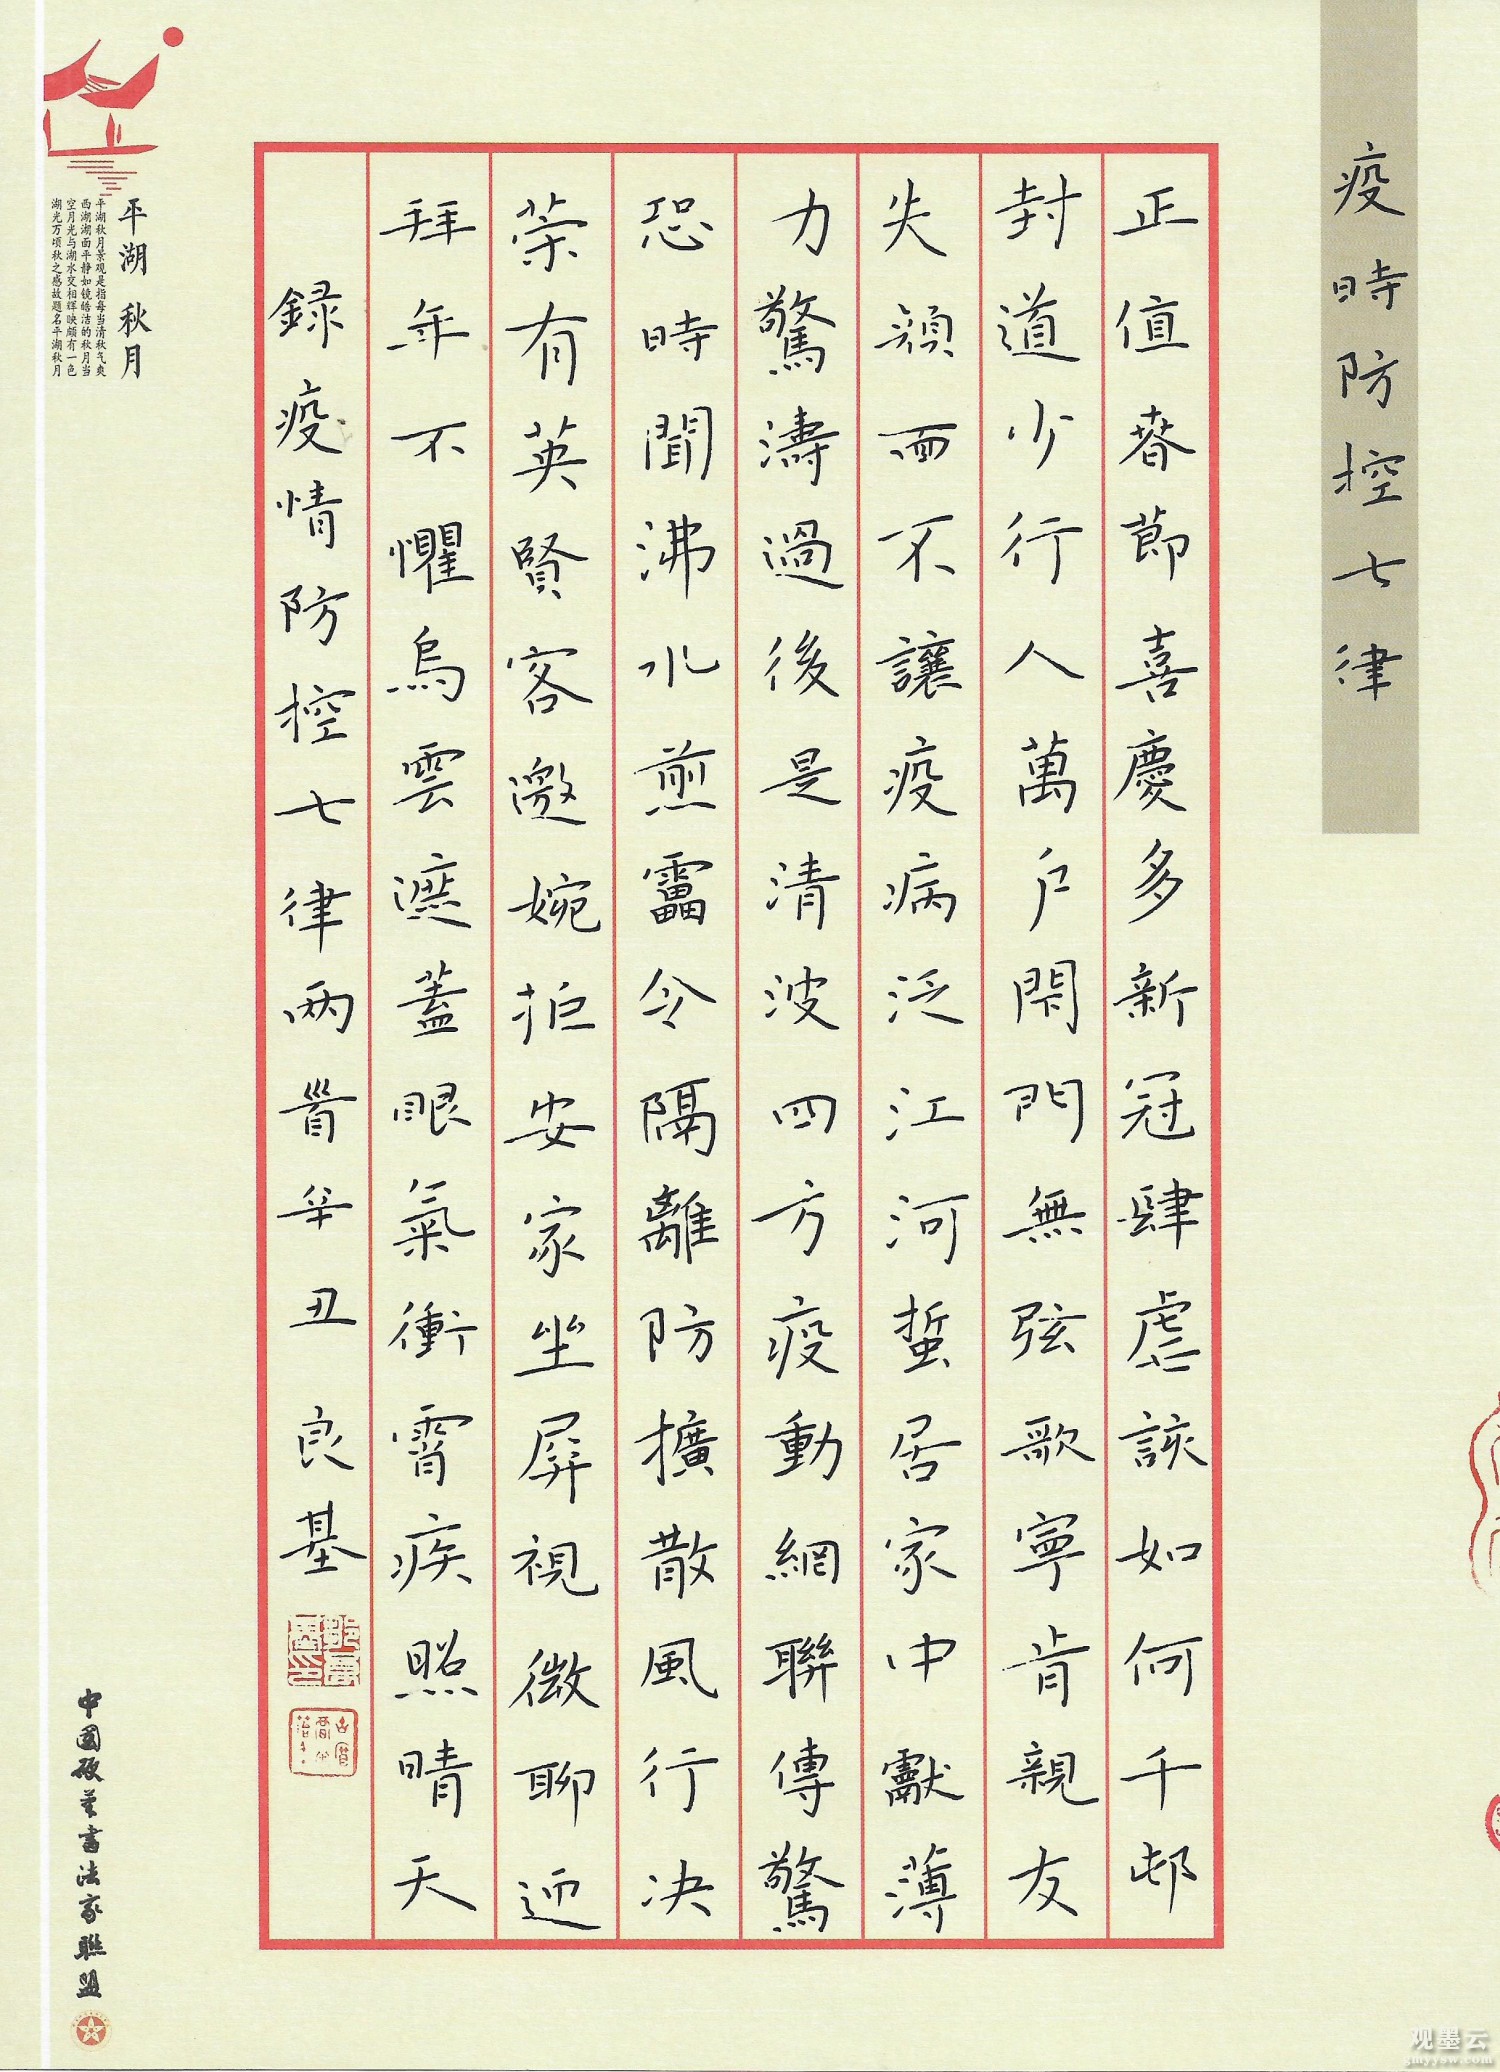 疫時防控七律
正值春節喜慶多新冠肆虐該如何千邨
封道少行人萬戶閇門無弦歌寧肯親友
失顏面不讓疫病泛江河蜇居家中獻薄
力驚濤過後是清波四方疫動網聯傳驚
恐時聞沸水煎靁令隔離防擴散風行决
策有英賢客邀婉拒安家坐屏視微聊迎
拜年不懼烏雲遮蓋眼氣衝霄疾照晴天
録疫情防控七律兩首辛丑良基
平湖秋月
平湖秋月景观是指每当清秋气爽
西湖湖面平静如镜皓洁的秋月当
空月光与湖水交相辉映颇有一色
湖光万顷秋之感故题名平湖秋月
中國硬筆書法家聯盟
观墨云
gmyysw.com